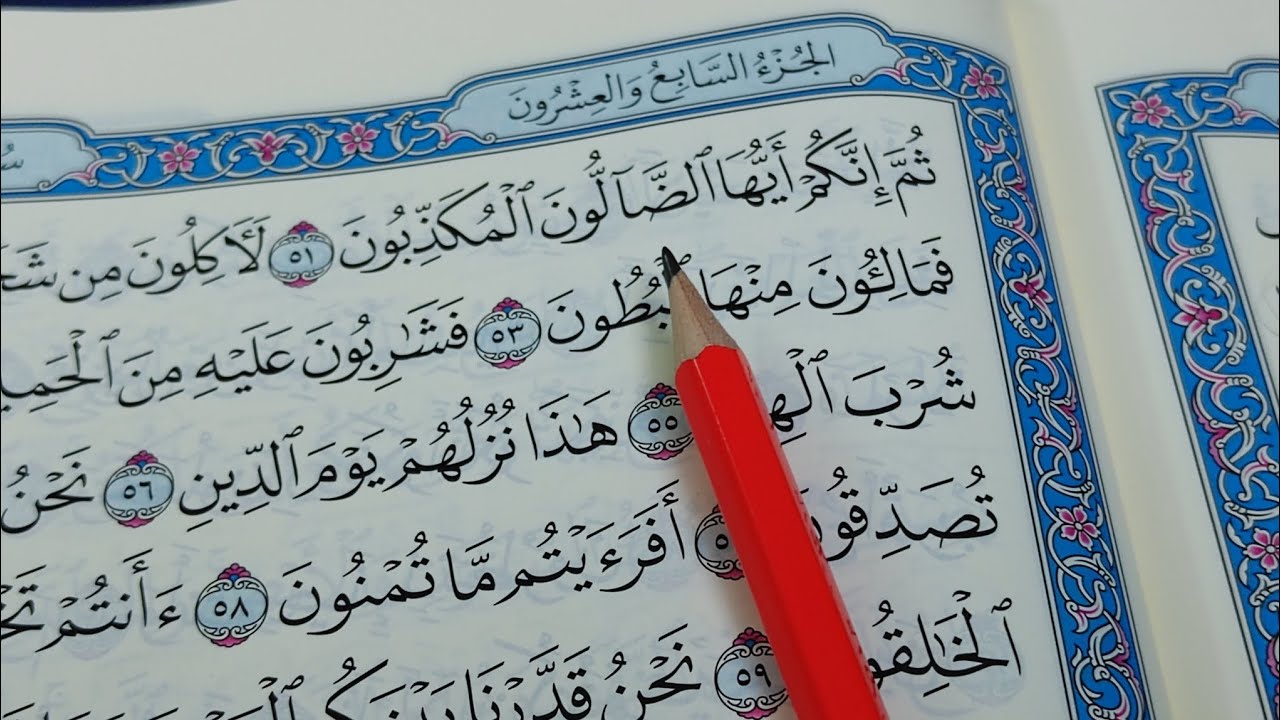 الجُزْءُ السَّابِعُ وَالعِشْرُونَ
ثُمَّ إِنَّكُمْ أَيُّهَا ٱلضَّآلُّونَ ٱلْمُكَذِّبُونَ ٥١ لَأٓكِلُونَ مِن
فَمَالِـُٔونَ مِنْهَا ٱلْبُطُونَ ٥٣ فَشَٰرِبُونَ عَلَيْهِ مِنَ
شُرْبَ ٥٥ هَٰذَا نُزُلُهُمْ يَوْمَ ٱلدِّينِ ٥٦ نَحْنُ
تُصَدِّقُونَ أَفَرَءَيْتُم مَّا تُمْنُونَ ٥٨ ءَأَنتُمْ
ٱلْخَٰلِقُونَ ٥٩ نَحْنُ قَدَّرْنَا بَيْنَكُمُ